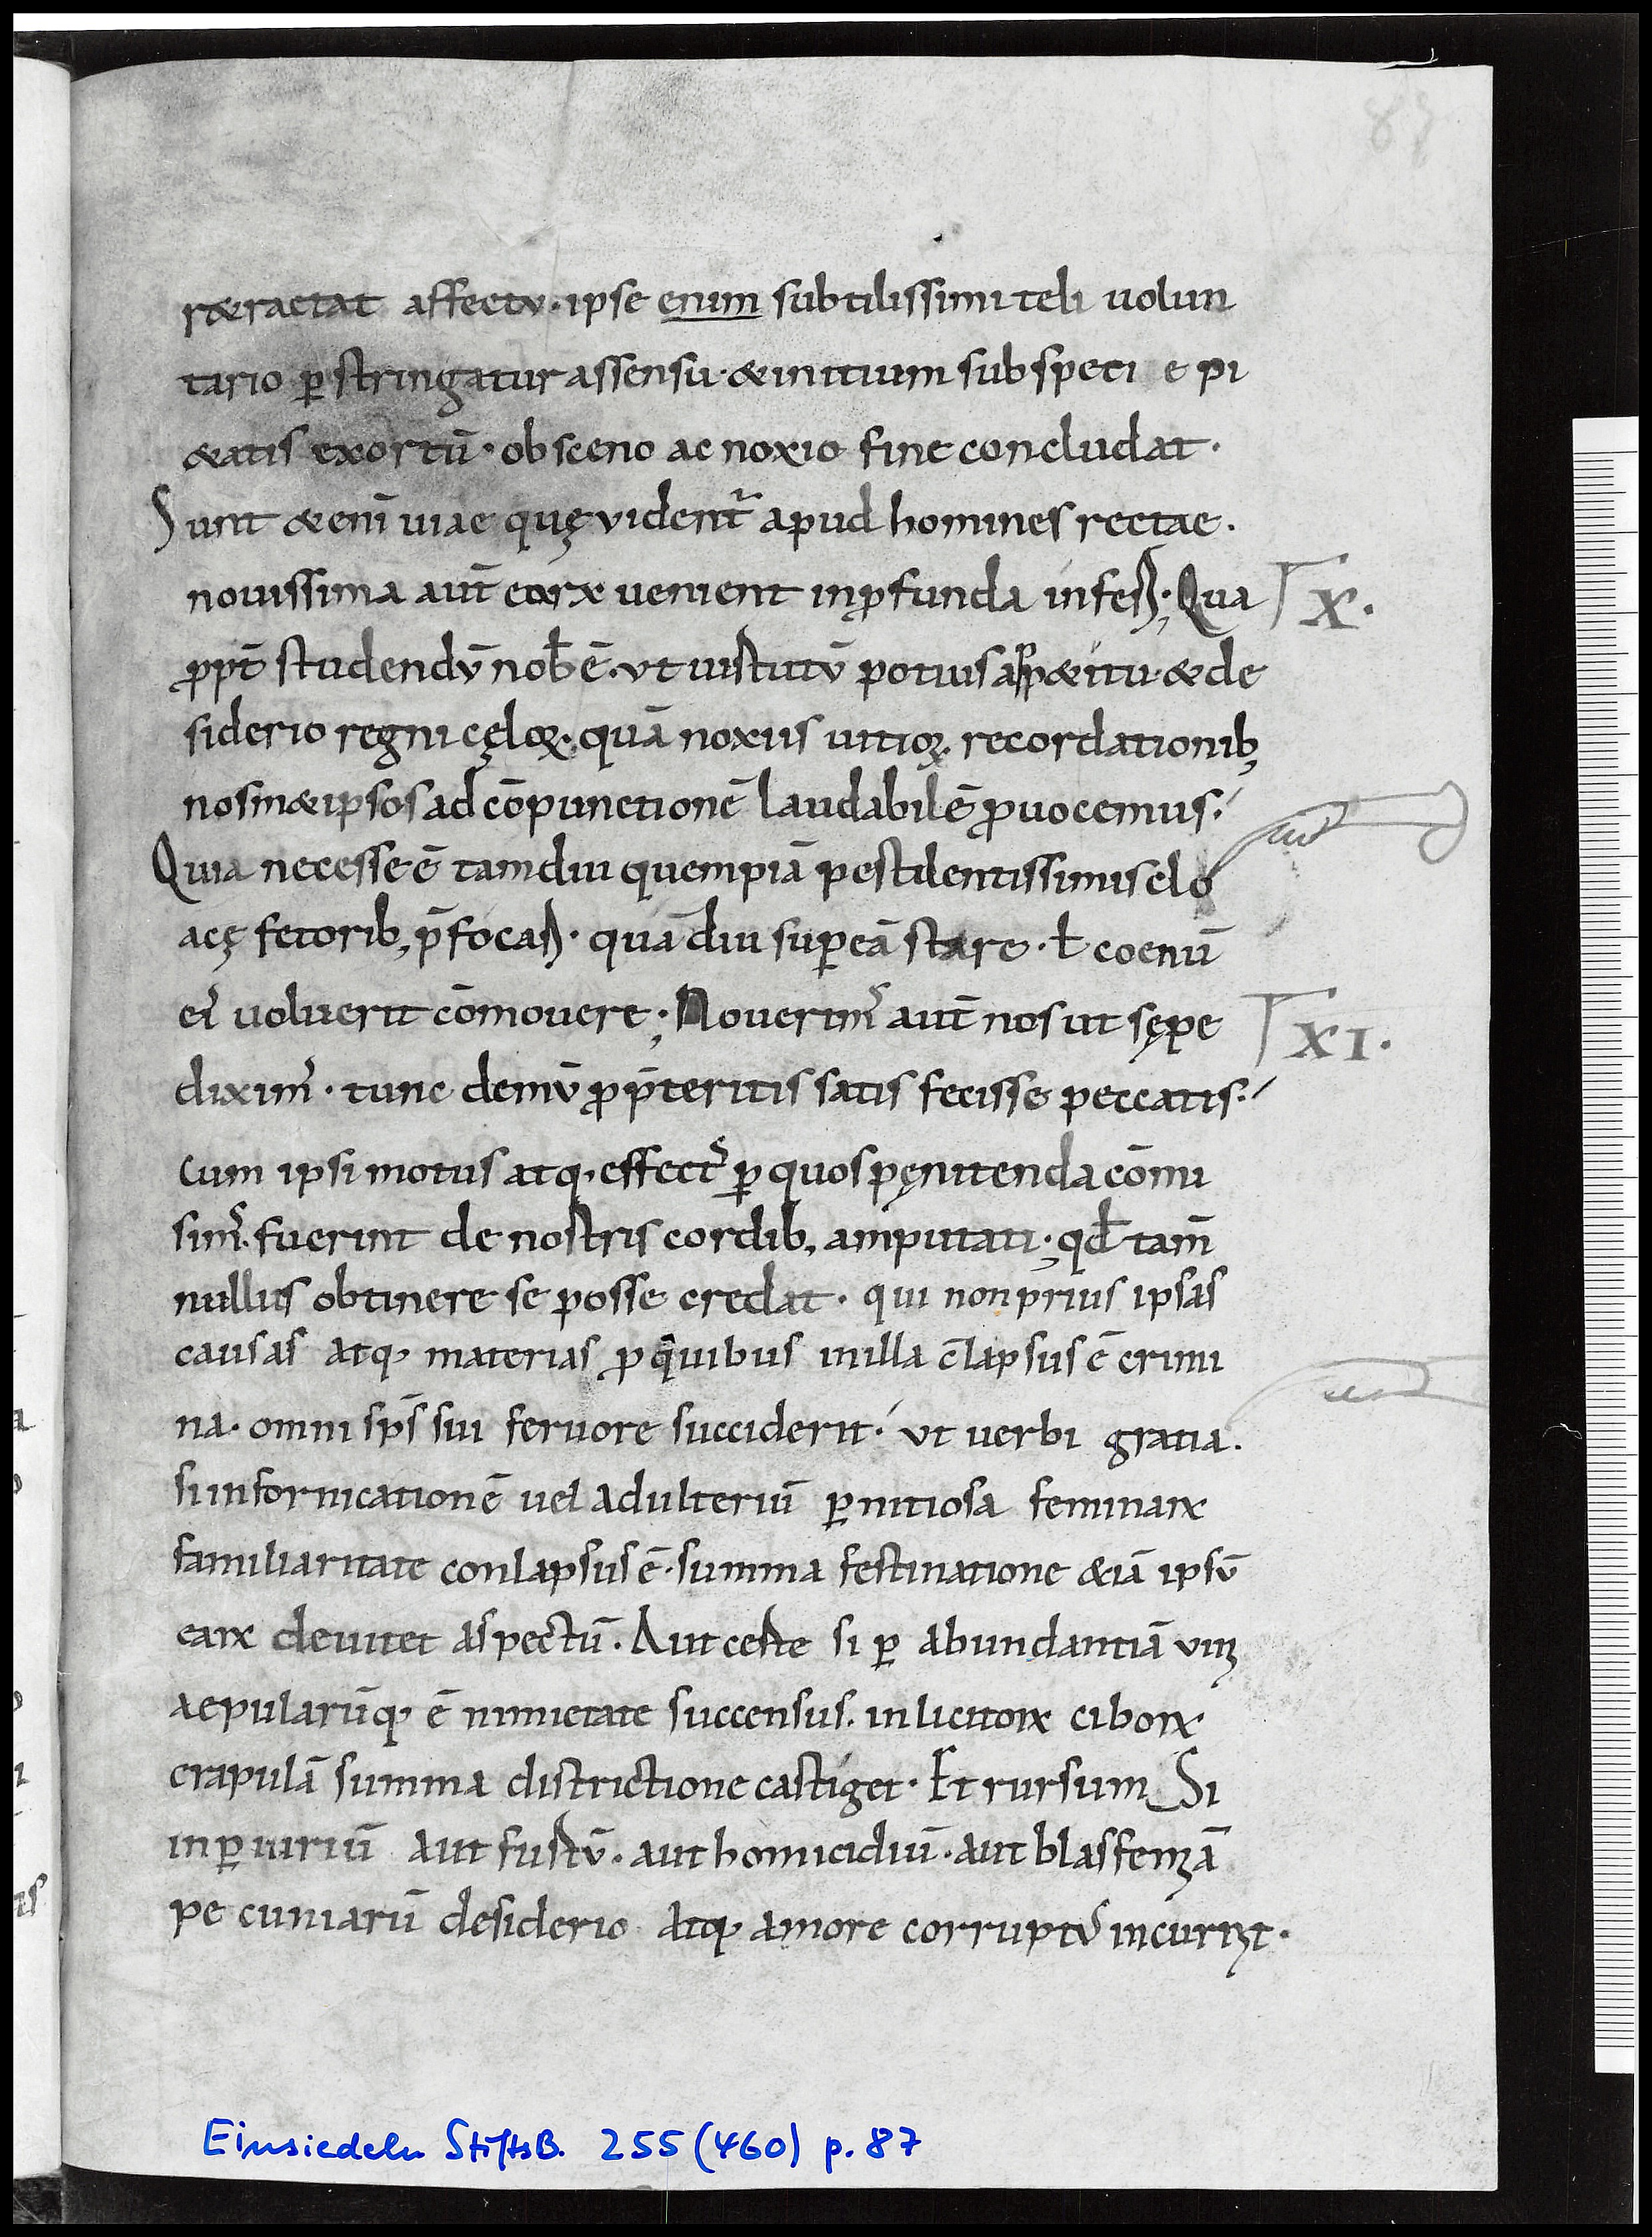 87
r&ractat affectu · ipse enim subtilissimi teli uolun
tario ꝑstringatur assensu · & initium sub speci e pi
&atis exortū · obsceno ac noxio fine concludat ·
Sunt &enī uiae quę vident᷑ apud homines rectae ·
nouissima aut̄ eorꝝ uenient in ꝓfunda inferꝝ ; Qua
X ·
ꝓpt̄ studendū nob̄ ē · ut uirtutū potius app&itu · & de
siderio regni cęloꝝ · quā noxiis uitioꝝ recordationib;
nosm&ipsos ad cōpunctionē laudabilē ꝓuocemus ·
Quia necesse ē tamdiu quempiā pestilentissimis clo
acę fetorib; p̄focari · quādiu sup eā stare · ł coenū
ei᷒ uoluerit cōmouere ; Nouerim᷒ aut̄ nos ut sępe
XI ·
dixim᷒ · tunc demū ꝓ p̄teritis satis fecisse peccatis ·
cum ipsi motus atq; effect᷒ ꝑ quos pęnitenda cōmi
sim᷒ · fuerint de nostris cordib; amputati ; qd̄ tam̄
nullus obtinere se posse credat · qui non prius ipsas
causas atq; materias pro quibus in illa c̄lapsus ē crimi
na · omni sp̄s sui feruore succiderit · ut uerbi gratia ·
si in fornicationē uel adulteriū ꝑnitiosa feminarꝝ
familiaritate conlapsus ē · summa festinatione &iā ipsū
earꝝ deuitet aspectū · Aut certe si ꝑ abundantiā uini
aepularūq; ē nimietate succensus · inlicitorꝝ ciborꝝ
crapulā summa districtione castiget · Et rursum Si
in ꝑiuriū aut furtū · aut homicidiū · aut blasfemiā
pe cuniarū desiderio atq; amore corrupt᷒ incurrit ·
Einsiedeln StiftsB. 255 (460) p. 87